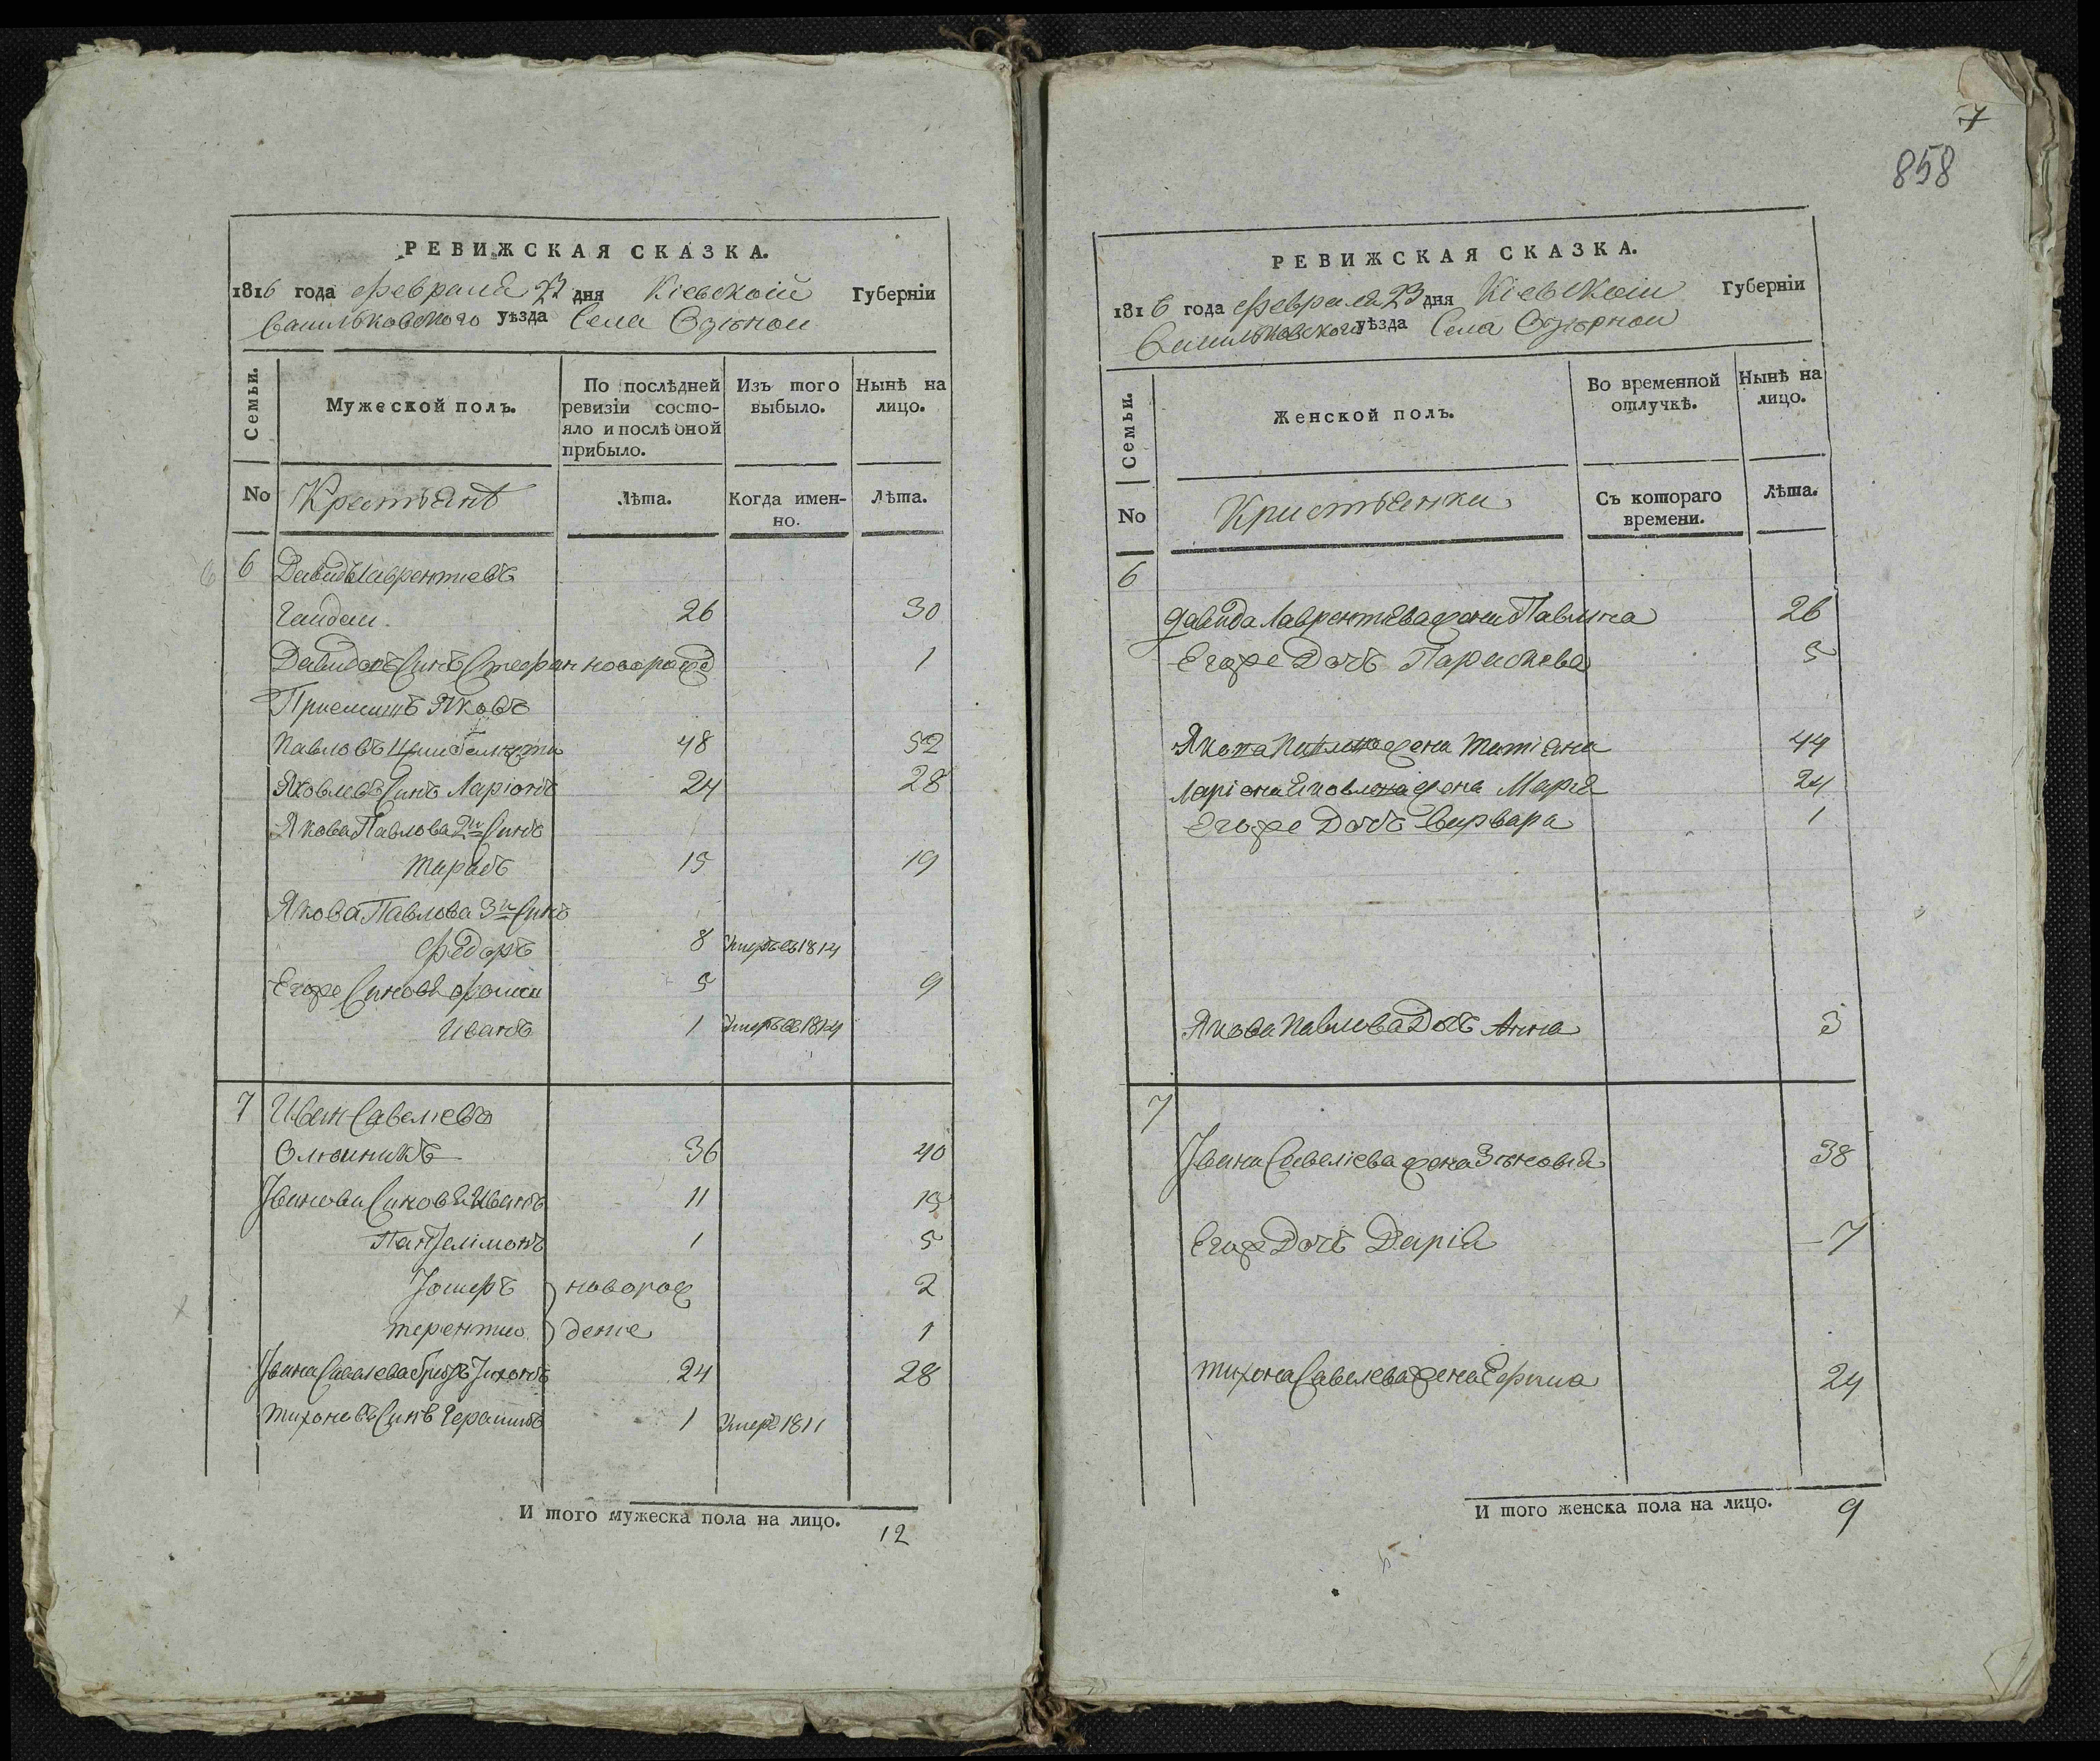 7
858
РЕВИЖСКАЯ СКАЗКА.
1816 года февраля 23 дня Кіевской Губерніи
Васильковского уѣзда Села Озѣрной
Семьи.
Мужеской полъ.
По послѣдней ревизіи состо-
яло и послѣ оной
прибыло.
Изъ того выбыло.
Нынѣ на лицо.
No
Крестьянѣ
Лѣта.
Когда имен-
но.
Лѣта.
6 6 Давидъ Лаврентиевъ
26 30
Давидовъ Синъ Стефан новорожд 1
Приемишъ Яковъ
Павловъ 48 52
Яковлевъ Синъ Ларіонъ 24 28
Якова Павлова 2й Синъ
Тарасъ 15 19
Якова Павлова 3й Синъ
Федоръ 8 Умеръ въ 1814
Егоже Синовя Фомы 5 9
Иванъ 1 Умеръ въ 1814
7 Иван Савелиевъ
Олѣйникъ 36 40
Іванови Синовя Иванъ 11 15
Пантелімонъ 1 5
новорож 2
терентий дение 1
Івана Савелиева братъ Тихонъ 24 28
Тихоновъ Синъ Герасимъ 1 Умеръ 1811
И того мужеска пола на лицо. 12
РЕВИЖСКАЯ СКАЗКА.
1816 года февраля 23 дня Кіевской Губерніи
Васильковского уѣзда Села Озѣрной
Семьи.
Женской полъ.
Во временной
отлучкѣ.
Нынѣ на
лицо.
No
Кристьянки
Съ котораго
времени.
Лѣта.
6
Давида Лаврентива жена Павлина 26
Егоже Дочь Параскева 5
Якова Павлова жена Татіяна 44
Ларіона Яковлева жена Марія 24
Егоже Дочь Варвара 1
Якова Павлова Дочь Анна 3
7
Івана Савелиева жена Зѣновія 38
Егоже Дочь Дарія 7
Тихона Савелева жена 24
И того женска пола на лицо. 9